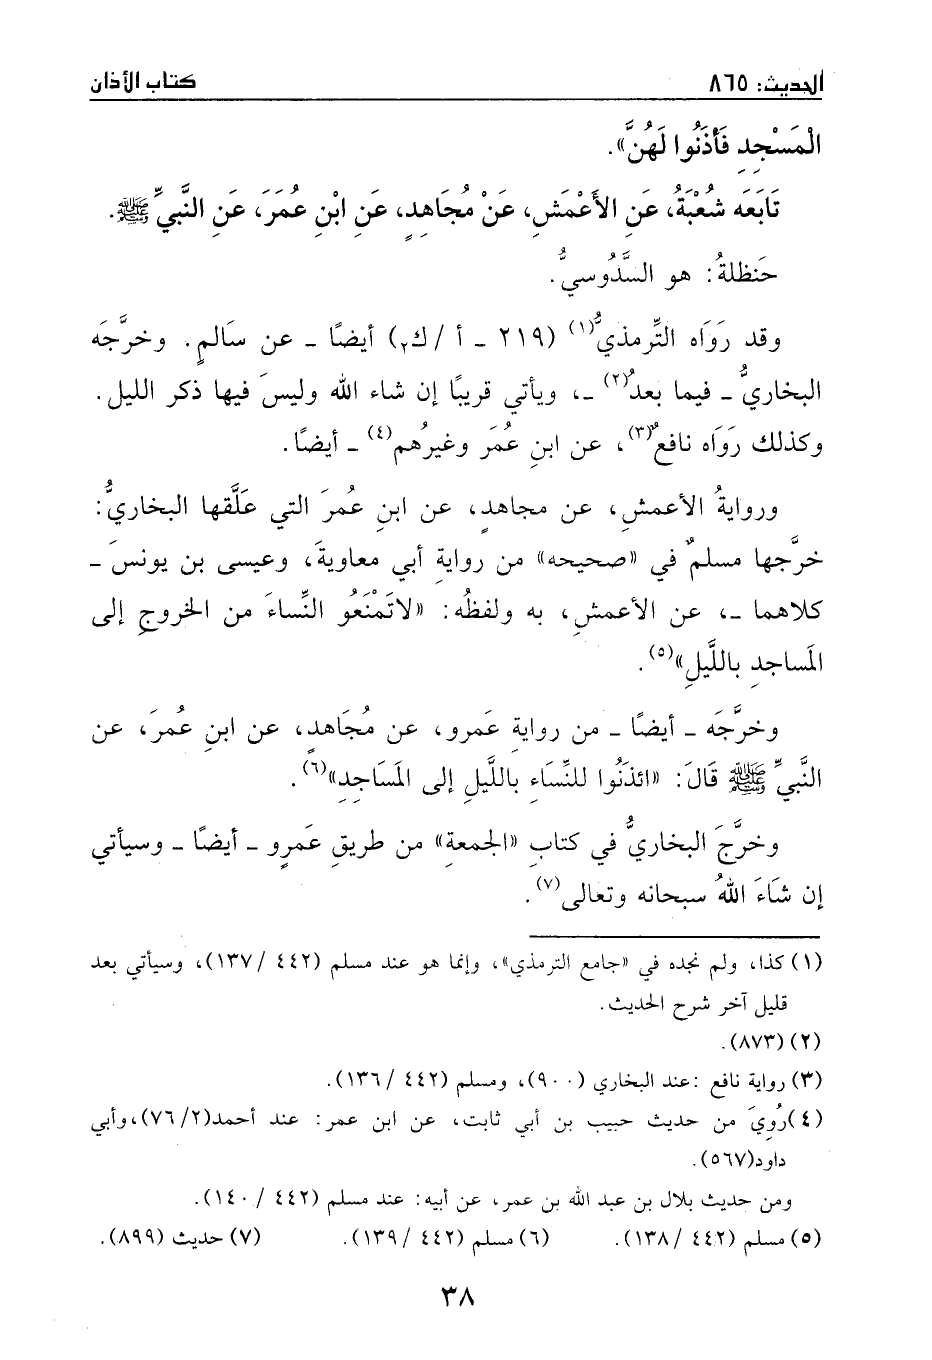 الحديث: ٨٦٥
كتاب الأذان
الْمَسْجِدِ فَأْذَنُوا لَهُنَّ».
تَابَعَه شُعْبَةُ، عَنِ الأَعْمَشِ، عَنْ مُجَاهِدٍ، عَنِ ابْنِ عُمَرَ، عَنِ النَّبيِّ ﷺ.
حَنظلةُ: هو السَّدُوسيُّ.
وقد رَوَاه التِّرمذيُّ(١) (٢١٩ - أ / ك٢) أيضًا - عن سَالمٍ. وخرَّجَه
البخاريُّ - فيما بعدُ(٢) -، ويأتي قريبًا إن شاء الله وليسَ فيها ذكر الليل.
وكذلك رَوَاه نافعٌ(٣)، عن ابنِ عُمَر وغيرُهم(٤) - أيضًا.
وروايةُ الأعمشِ، عن مجاهدٍ، عن ابنِ عُمرَ التي عَلَّقها البخاريُّ:
خرَّجها مسلمٌ في «صحيحه» من روايةِ أبي معاويةَ، وعيسى بن يونسَ -
كلاهما -، عن الأعمشِ، به ولفظُه: «لاتَمْنَعُو النِّساءَ من الخروجِ إلى
المَساجدِ باللَّيلِ»(٥).
وخرَّجَه - أيضًا - من روايةِ عَمرو، عن مُجَاهدٍ، عن ابنِ عُمرَ، عن
النَّبيِّ ﷺ قَالَ: «ائذَنُوا للنِّسَاءِ باللَّيلِ إلى المَسَاجِدِ»(٦).
وخرَّجَ البخاريُّ في كتابِ «الجمعةِ» من طريقِ عَمرٍو - أيضًا - وسيأتي
إن شَاءَ اللهُ سبحانه وتعالى(٧).
(١) كذا، ولم نجده في «جامع الترمذي»، وإنما هو عند مسلم (٤٤٢ /١٣٧)، وسيأتي بعد
قليل آخر شرح الحديث.
(٢) (٨٧٣).
(٣) رواية نافع :عند البخاري (٩٠٠)، ومسلم (٤٤٢ /١٣٦).
(٤)رُوِيَ من حديث حبيب بن أبي ثابت، عن ابن عمر: عند أحمد(٧٦/٢)،وأبي
داود(٥٦٧).
ومن حديث بلال بن عبد الله بن عمر، عن أبيه: عند مسلم (٤٤٢ /١٤٠).
(٥) مسلم (٤٤٢ /١٣٨). (٦) مسلم (٤٤٢ /١٣٩). (٧) حديث (٨٩٩).
٣٨